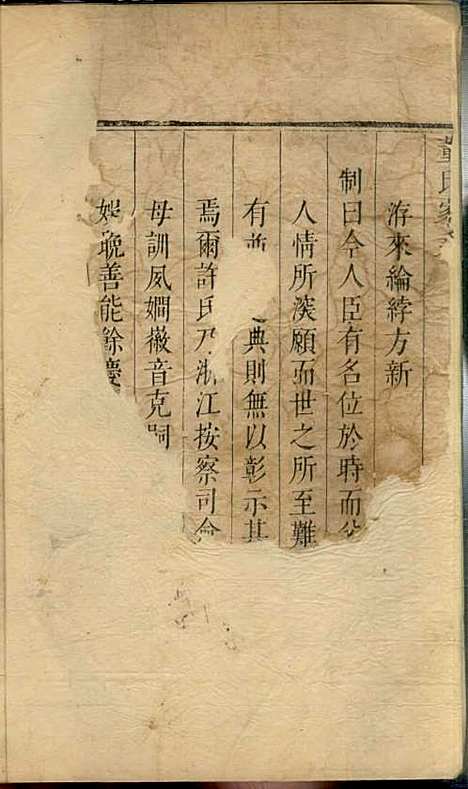 董氏家
洊來綸綍方新
制曰今人臣有名位於時而
人情所深願而世之所至難
有 典則無以彰示其
焉爾許氏乃浙江按察司僉
母訓夙嫺徽音克嗣
娩善能餘慶